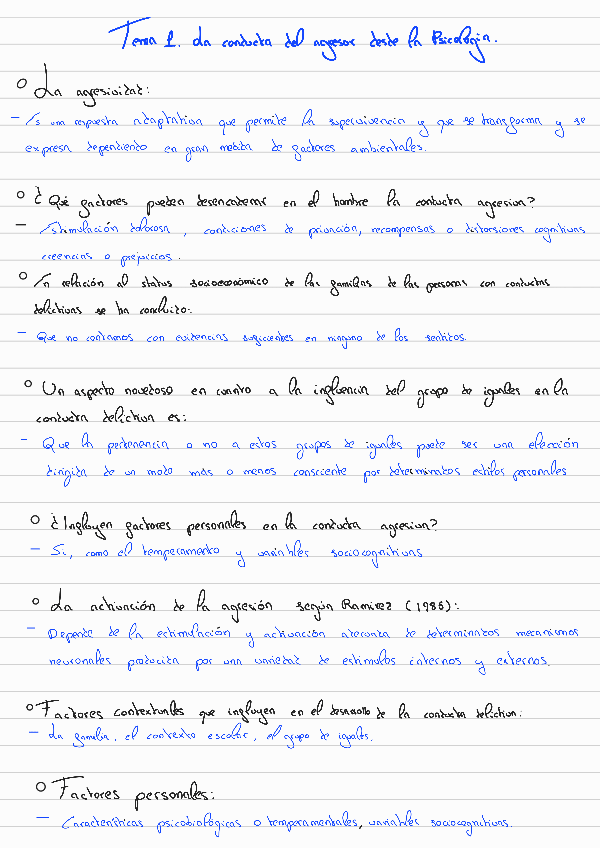 Tema 1. La conducta del agresor desde la Psicología.
○ La agresividad:
- Es una respuesta adaptativa que permite la supervivencia y que se transforma y se
expresa dependiendo en gran medida de factores ambientales.
○ ¿Qué factores pueden desencadenar en el hombre la conducta agresiva?
- Estimulación dolorosa, condiciones de privación, recompensas o distorsiones cognitivas
creencias o prejuicios.
○ En relación al status socioeconómico de las familias de las personas con conductas
delictivas se ha concluido:
- Que no contamos con evidencias suficientes en ninguno de los sentidos.
○ Un aspecto novedoso en cuanto a la influencia del grupo de iguales en la
conducta delictiva es:
- Que la pertenencia o no a estos grupos de iguales puede ser una elección
dirigida de un modo más o menos consciente por determinados estilos personales
○ ¿Influyen factores personales en la conducta agresiva?
- Si, como el temperamento y variables sociocognitivas
○ La activación de la agresión según Ramirez (1986):
- Depende de la estimulación y activación adecuada de determinados mecanismos
neuronales producida por una variedad de estímulos internos y externos.
○ Factores contextuales que influyen en el desarrollo de la conducta delictiva:
- La familia, el contexto escolar, el grupo de iguales.
○ Factores personales:
- Características psicobiológicas o temperamentales, variables sociocognitivas.